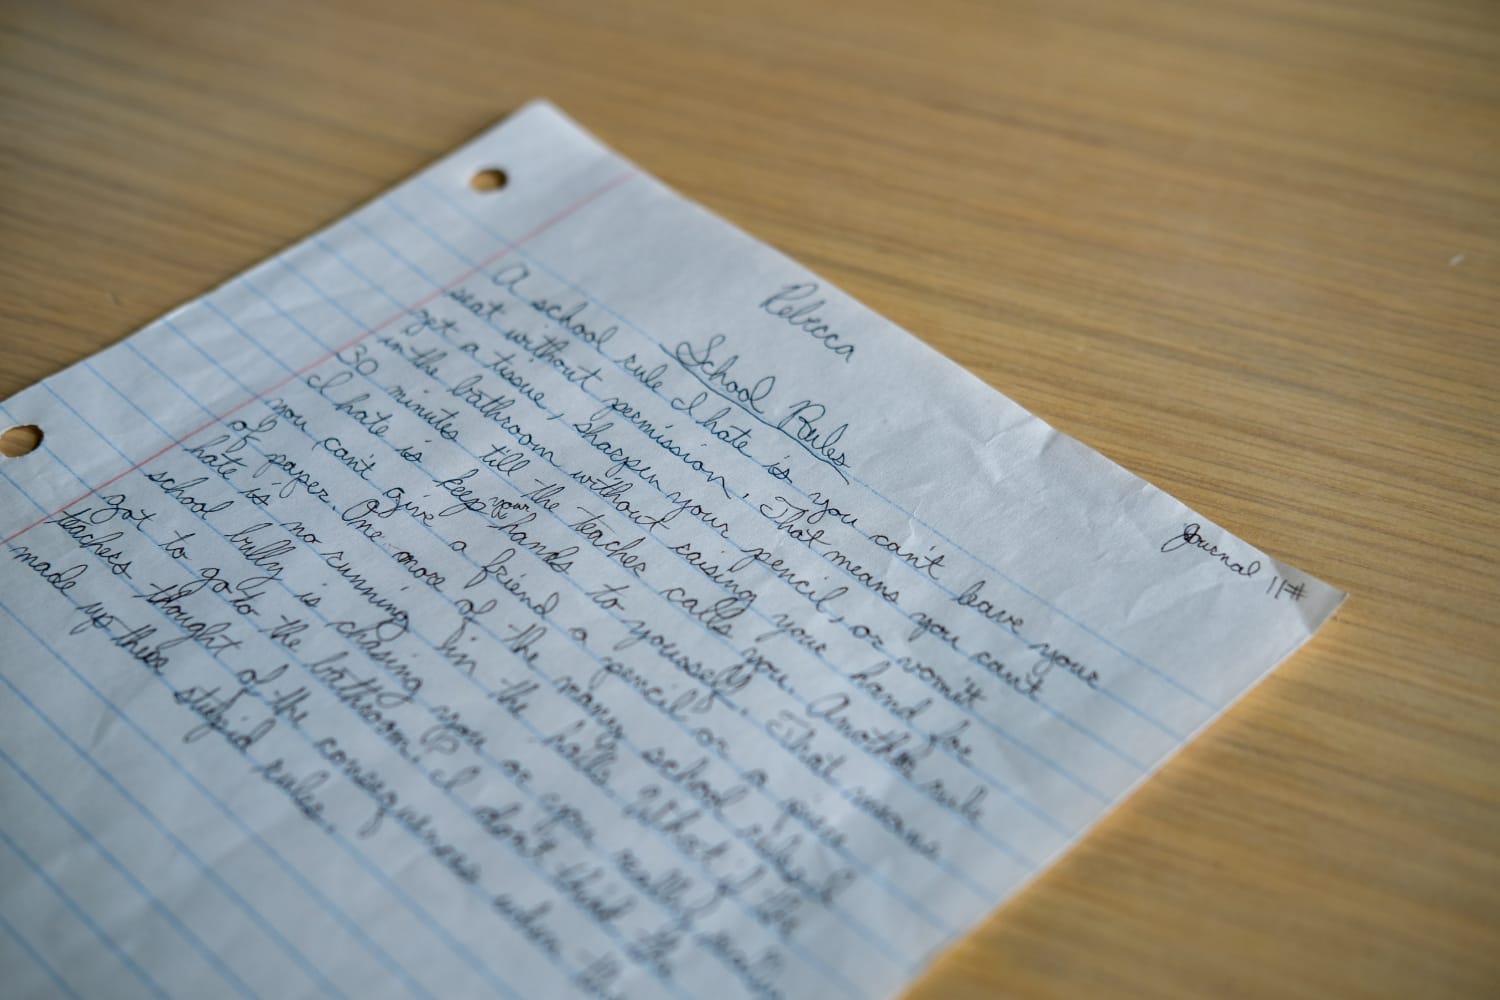 Rebecca
Journal 11#
School Rules
A school rule I hate is you can't leave your
seat without permission. That means you can't
get a tissue, sharpen your pencil, or vomit
in the bathroom without raising your hand for
30 minutes till the teacher calls you. Another rule
I hate is keep your hands to yourself. That means
you can't give a friend a pencil or a piece
of paper. One more of the many school rules I
hate is no running in the halls. What if the
school bully is chasing you or you really
got to go to the bathroom. I don't think the
teachers thought of the consequences when
made up these stupid rules.